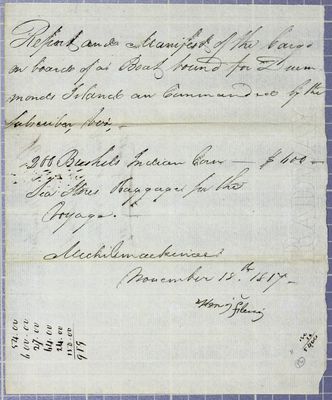 Report and Manifest of the Cargo
on board of a Boat bound for Drum
monds Island an Commanded by the
Subscriber, Viz,
200 Bushels Indian Corn — $400 —
Sea Stores Baggage for the
Voyage. —
Michilimackinac
November 18th 1817 —
Henry
54.00
600.00
27.00
64.00
24.00